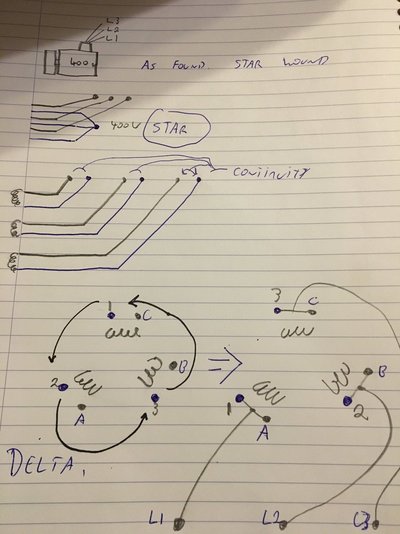 L3
L2
L1
400V
AS FOUND. STAR WOUND
400V STAR
CONTINUITY
1 C
3 C
2 A
B
3
1 A
B
2
DELTA.
L1 L2 L3